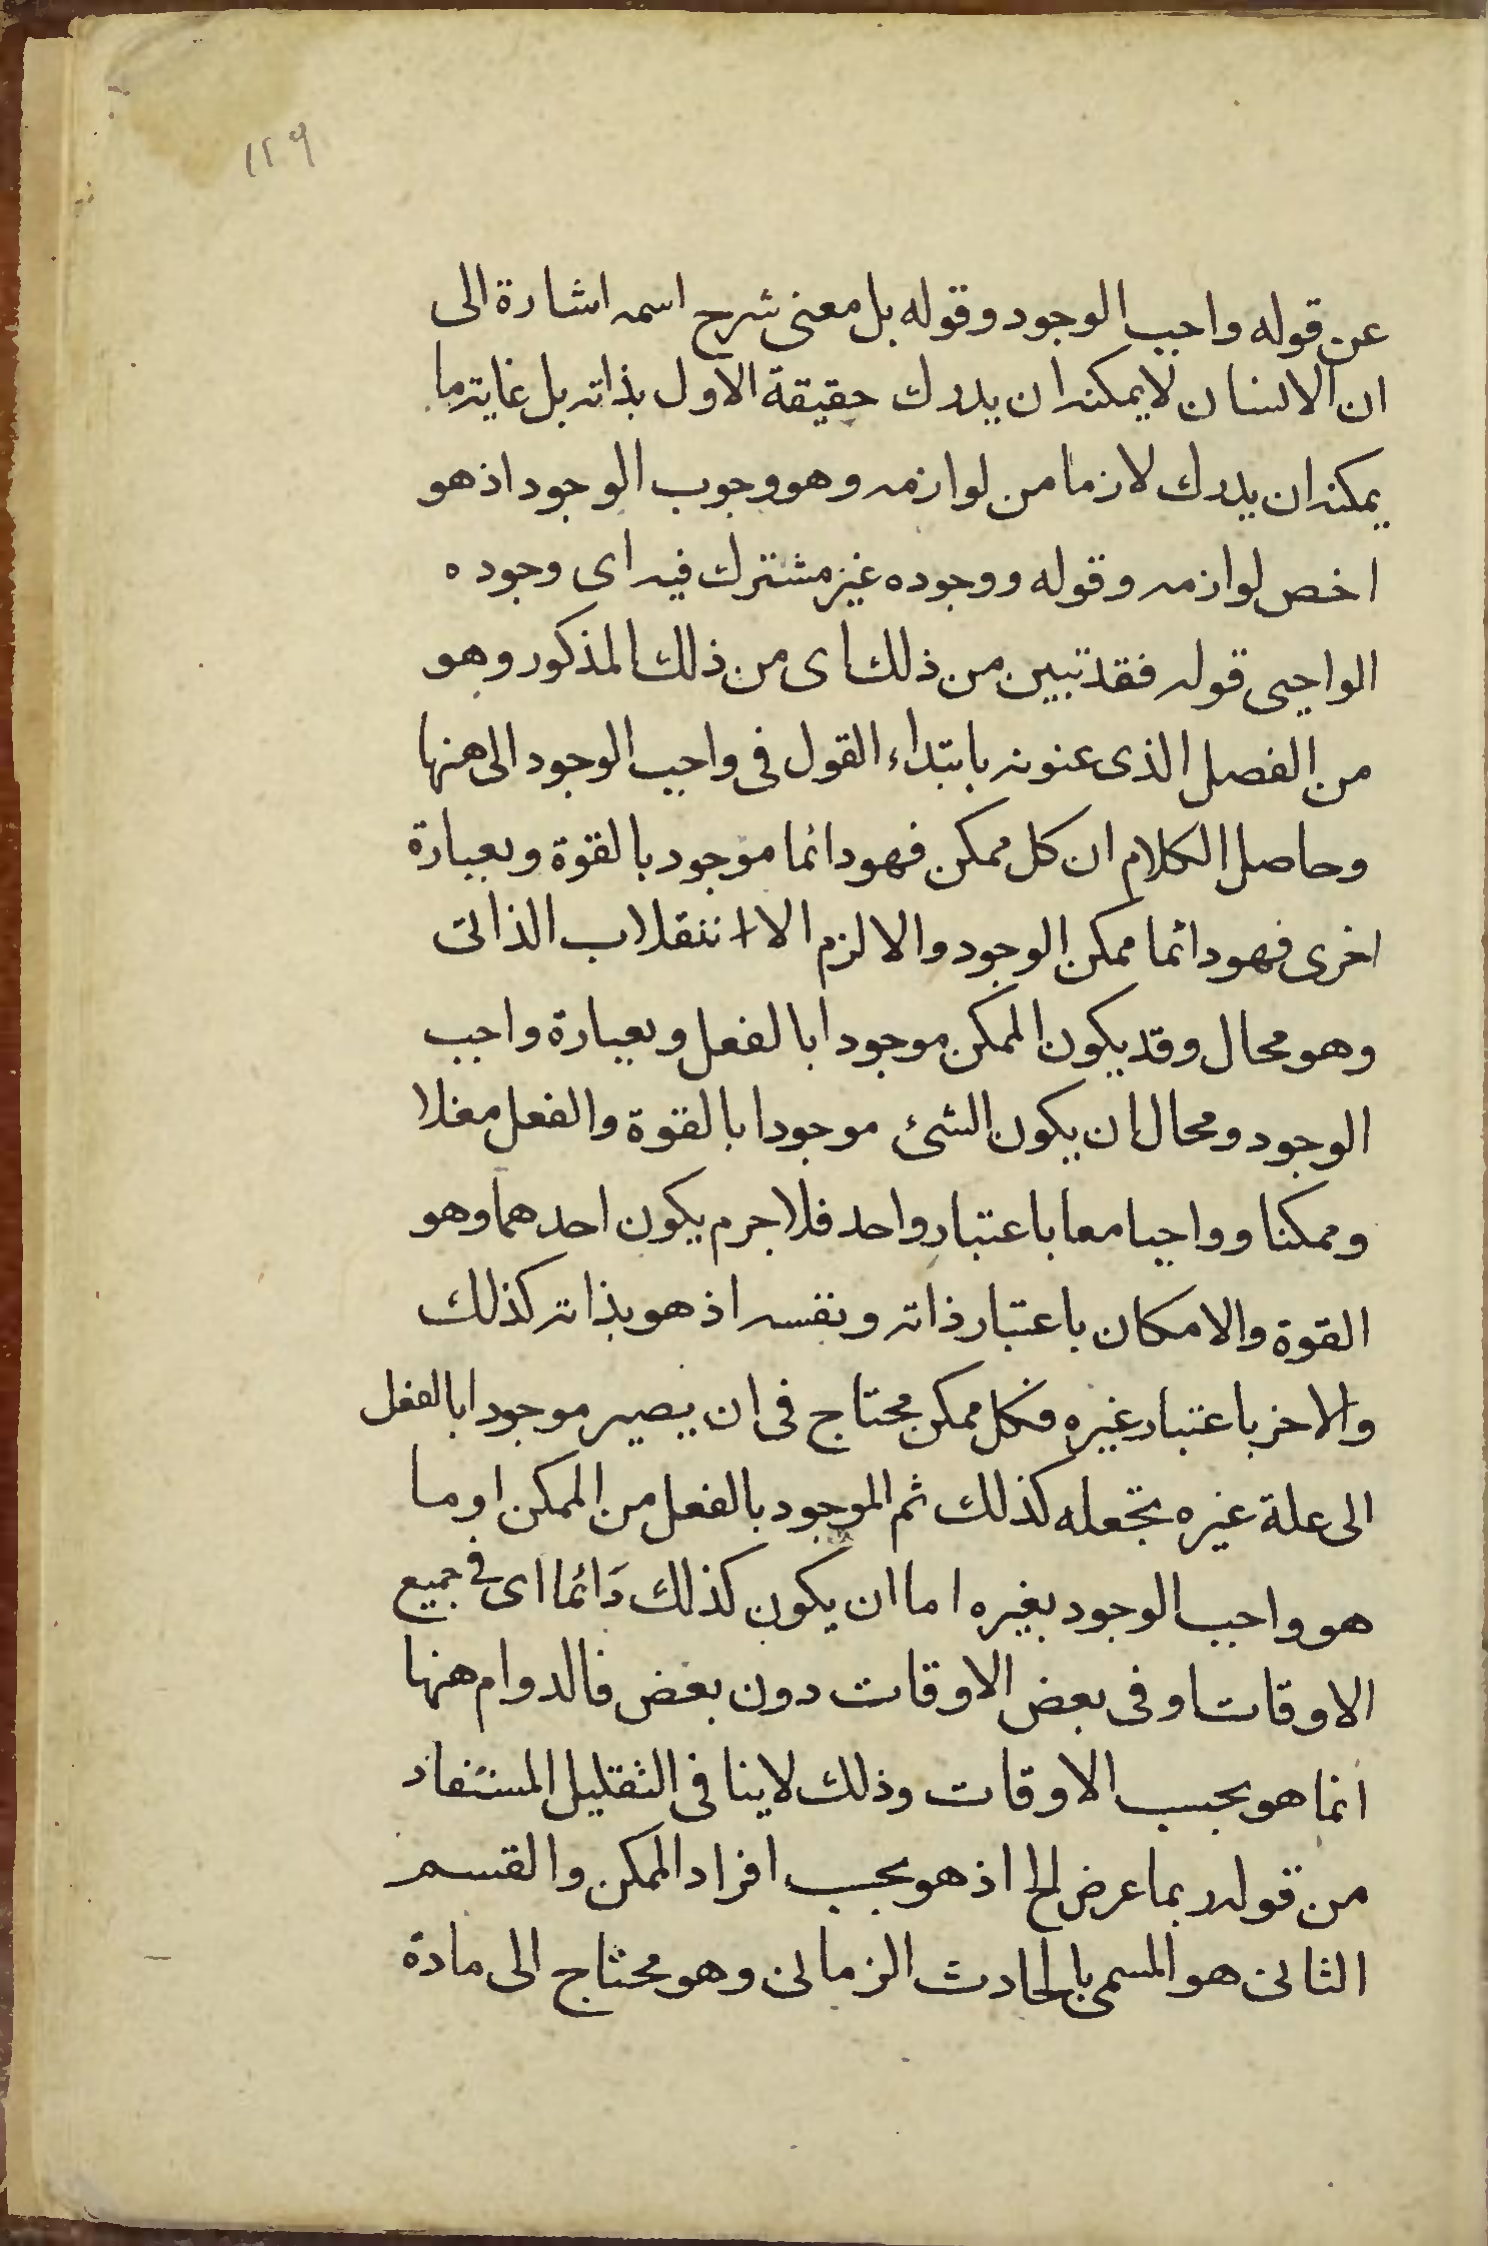 ١٢٩
عن قوله واجب الوجود وقوله بل معنى شرح اسمه اشارة الى
ان الانسان لا يمكنه ان يدرك حقيقة الاول بذاته بل غايته ما
يمكنه ان يدرك لازما من لوازمه وهو وجوب الوجود اذ هو
اخص لوازمه وقوله ووجوده غير مشترك فيه اى وجوده
الواجبى قوله فقد تبين من ذلك اى من ذلك المذكور وهو
من الفصل الذى عنونه بابتداء القول فى واجب الوجود الى هنها
وحاصل الكلام ان كل ممكن فهو دائما موجود بالقوة وبعبارة
اخرى فهو دائما ممكن الوجود والا لزم الا انتقلاب الذاتى
وهو محال وقد يكون الممكن موجودا بالفعل وبعبارة واجب
الوجود ومحال ان يكون الشئ موجودا بالقوة والفعل مغلا
وممكنا وواجبا معا باعتبار واحد فلا جرم يكون احدهما وهو
القوة والامكان باعتبار ذاته ونفسه اذ هو بذاته كذلك
والاخر باعتبار غيره فكل ممكن محتاج فى ان يصير موجودا بالفعل
الى علة غيره تجعله كذلك ثم الموجود بالفعل من الممكن او ما
هو واجب الوجود بغيره اما ان يكون كذلك دَائما اى فى جميع
الاوقات او فى بعض الاوقات دون بعض فالدوام هنها
انما هو بحسب الاوقات وذلك لا ينافى التقليل المستفاد
من قوله ربما عرض الخ اذ هو بحسب افراد الممكن والقسم
الثانى هو المسمى بالحادث الزمانى وهو محتاج الى مادة